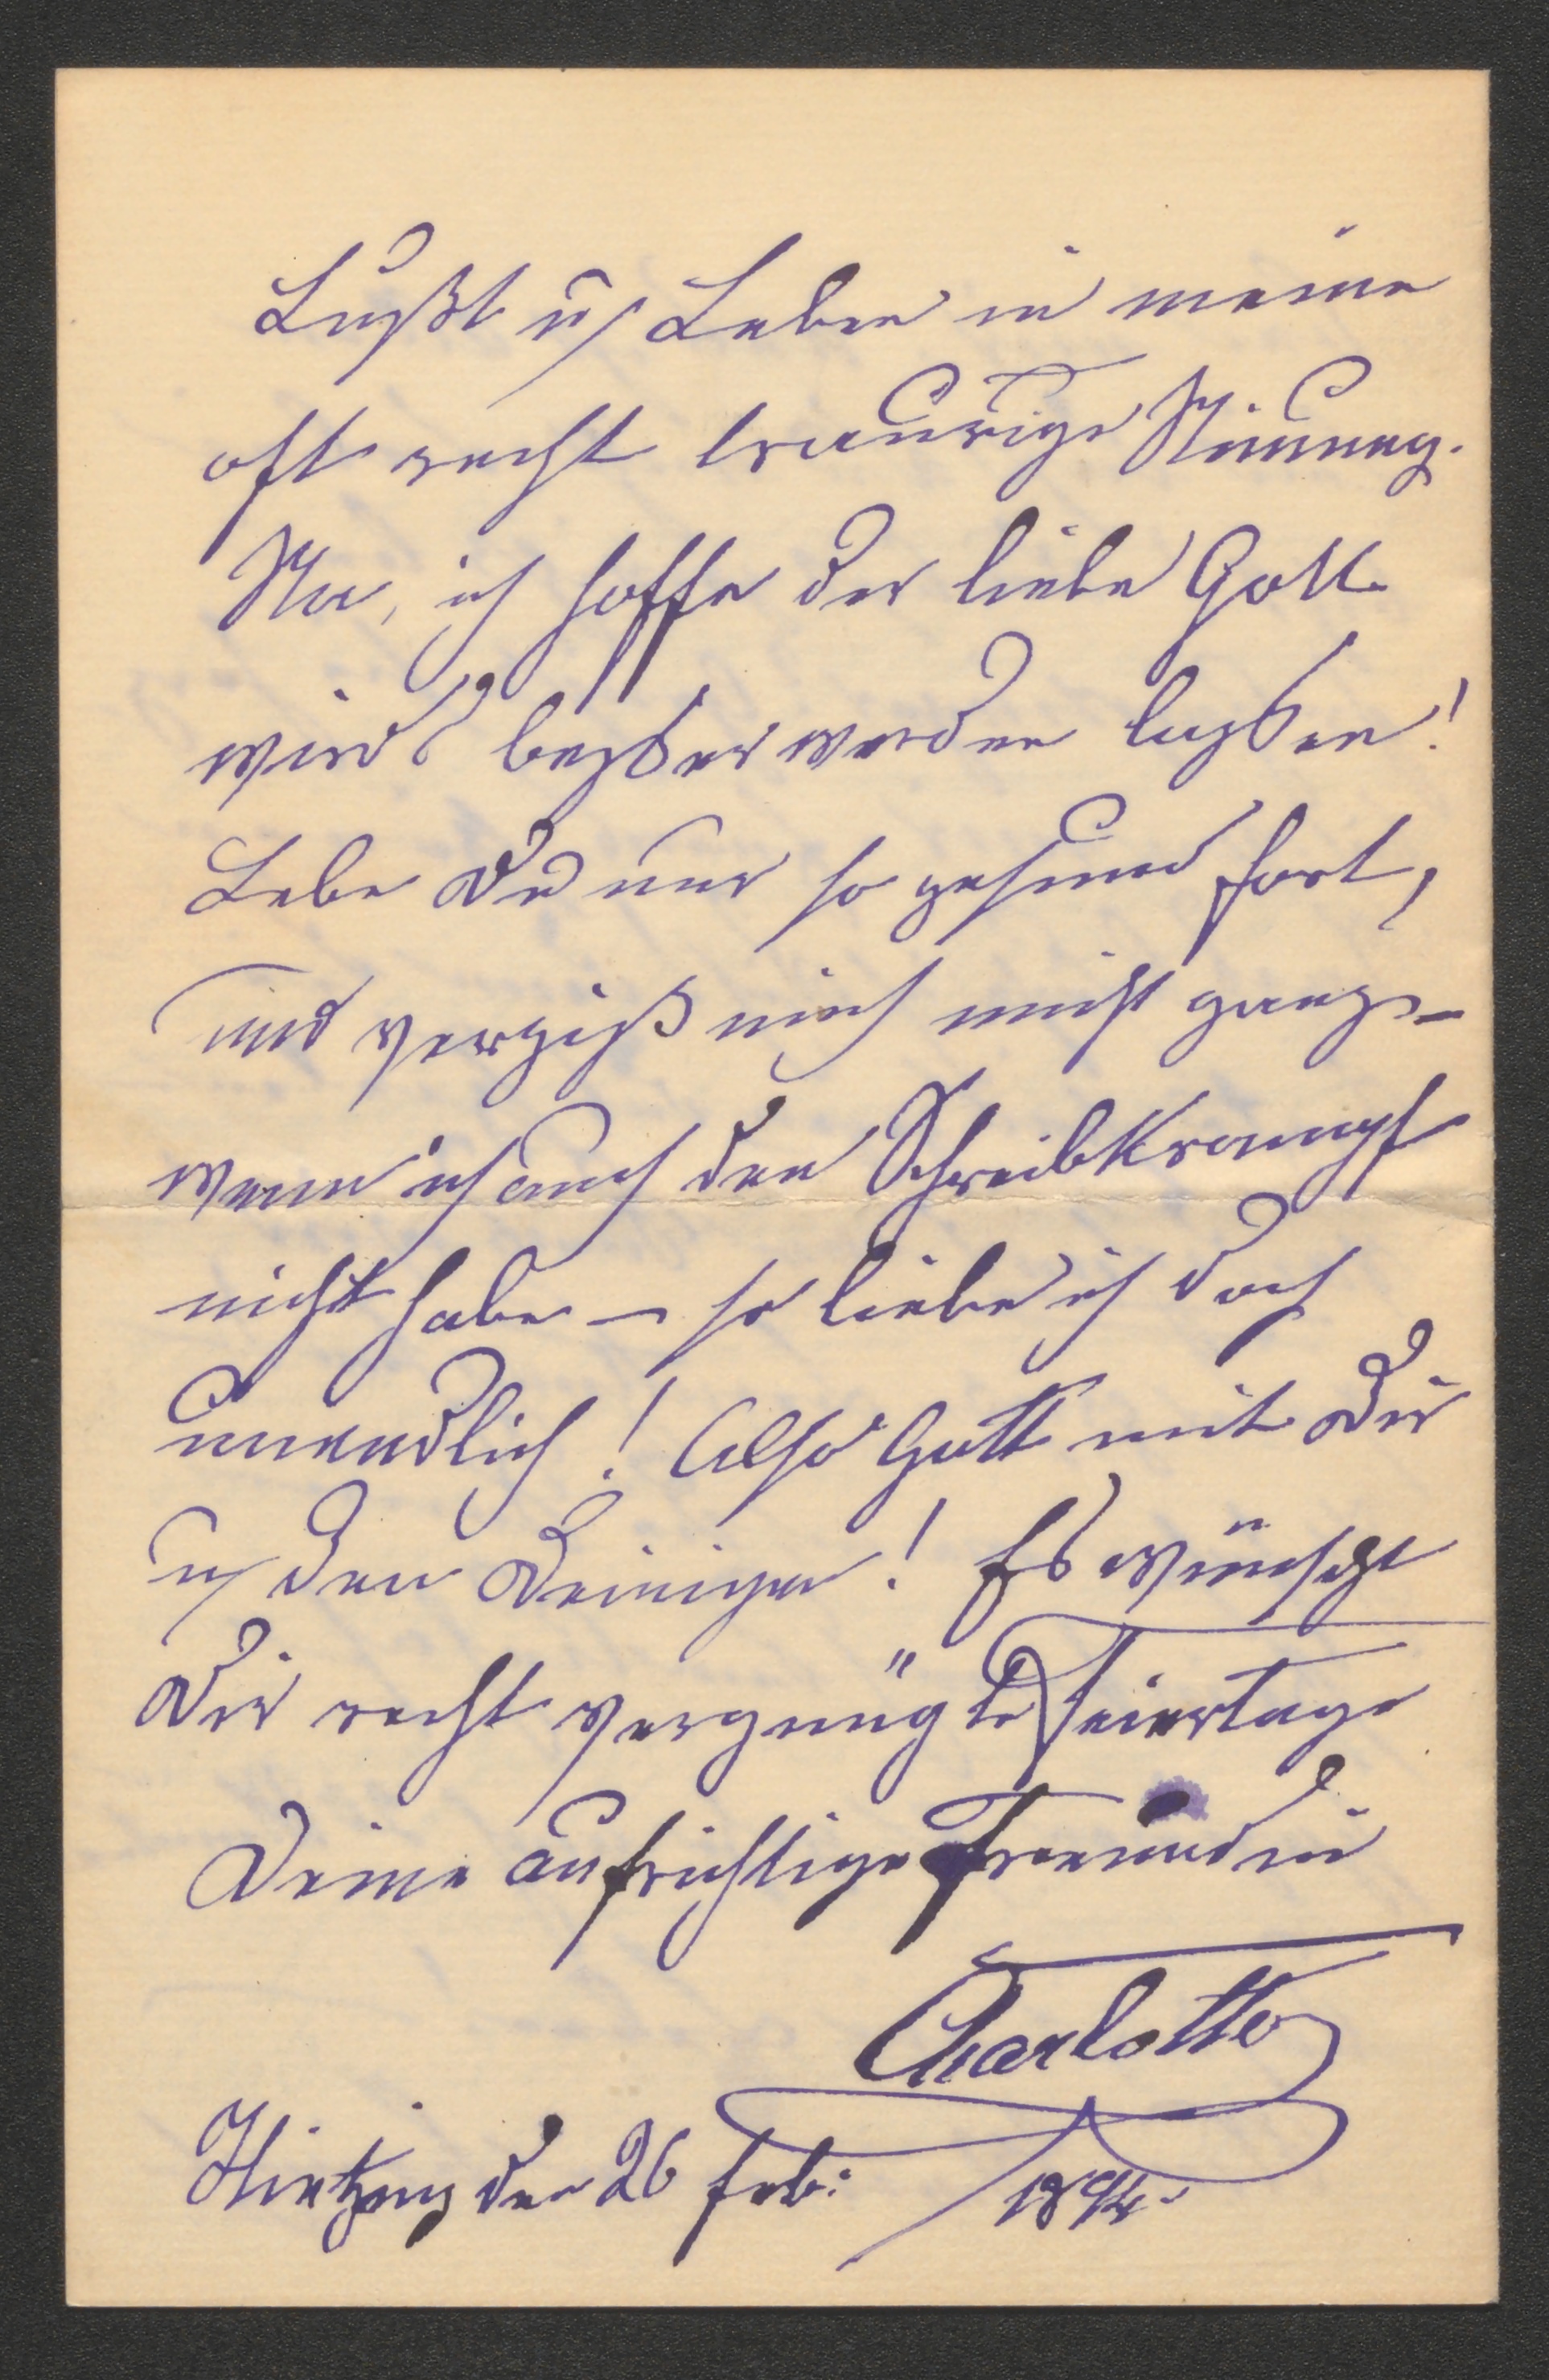 Lußt u Leben in meine
oft recht traurige Stimung.
Na, ich hoffe der liebe Gott
wirds beßser werden laßsen!
Lebe Du nur so gesund fort,
und vergiß mich nicht ganz –
wenn ich auch den Schreibkrampf
nicht habe – so liebe ich doch
unendlich! Also Gott mit Dir
u den Deinigen! Es wünscht
Dir recht vergnügte Feiertage
Deine aufrichtige Freundin
Charlotte
Hietzing den 26 Feb: 1894.